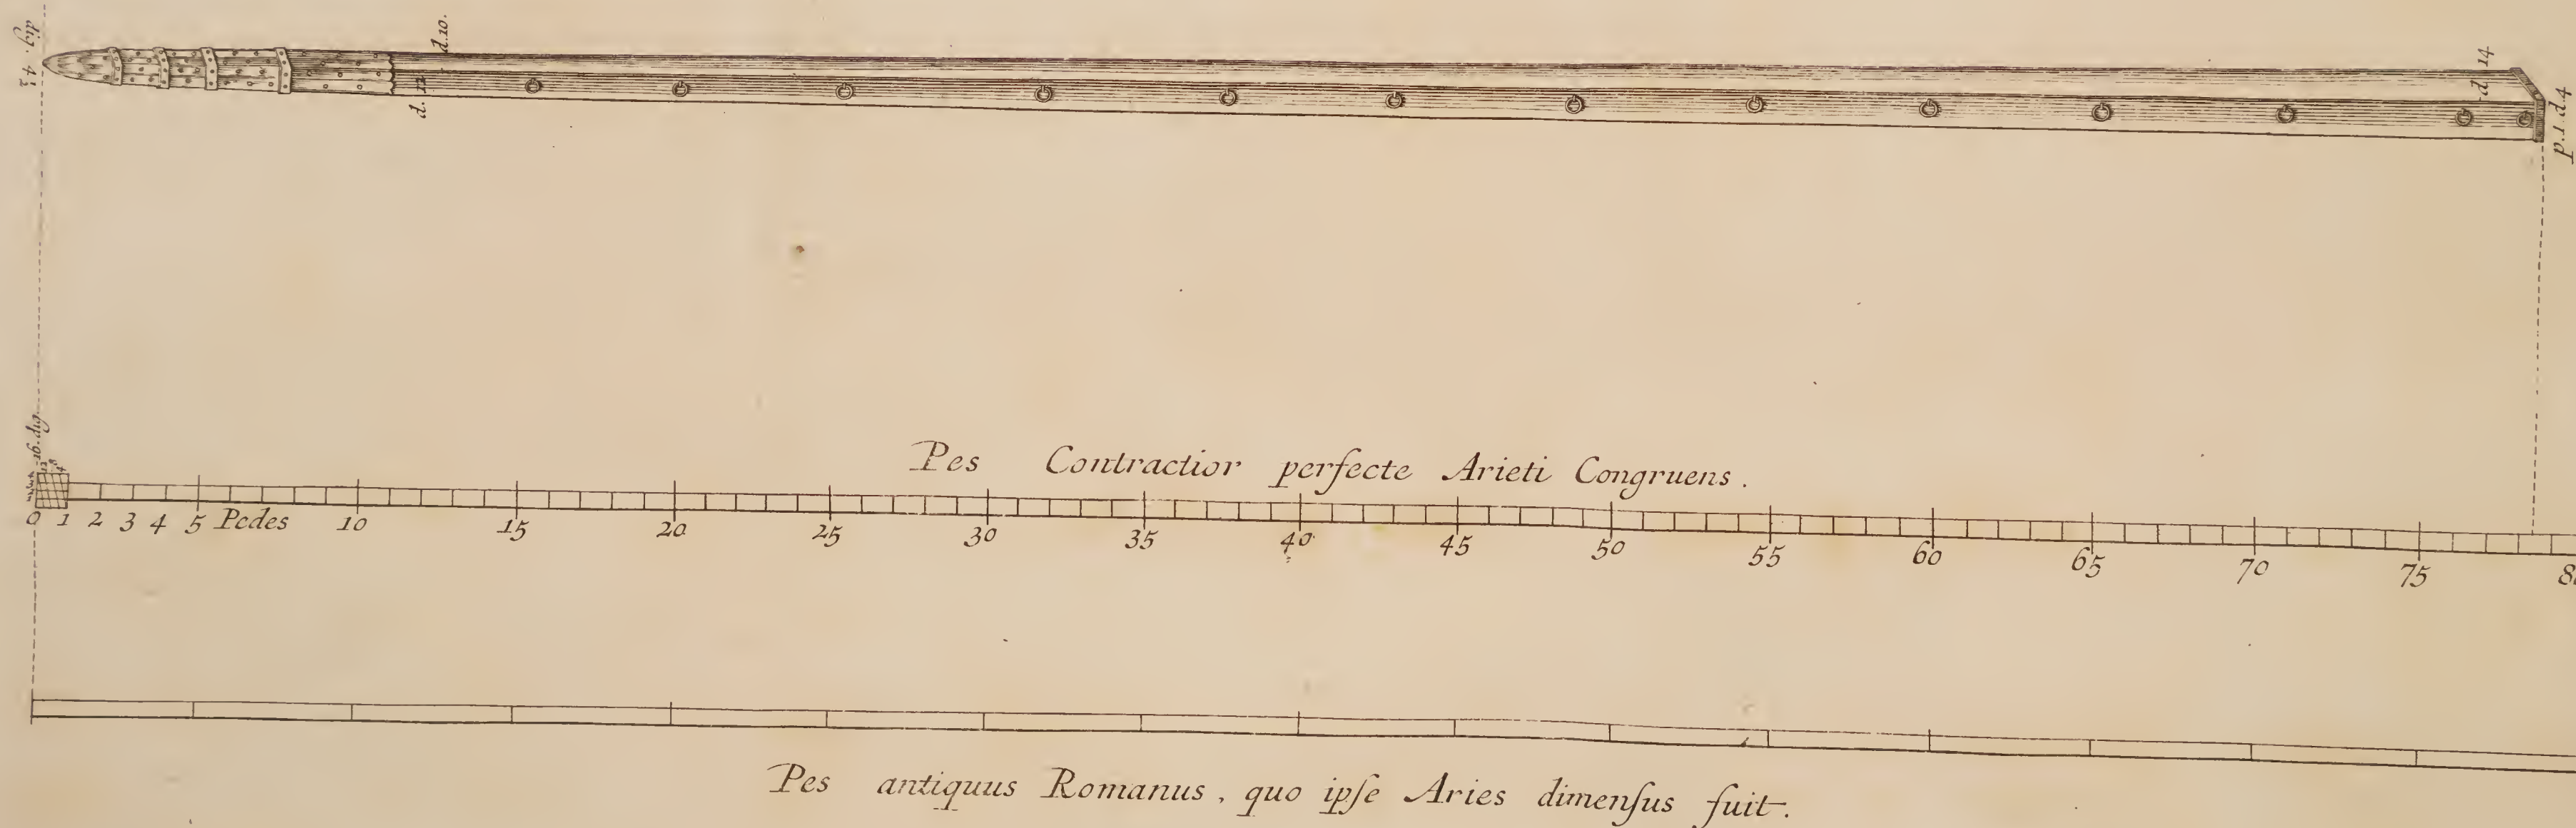 dig. 4½
d. 10.
d. 12
d. 14
p. 1. d. 4
16. dig.
Pes Contractior perfecte Arieti Congruens.
0 1 2 3 4 5 Pedes 10 15 20 25 30 35 40 45 50 55 60 65 70 75
Pes antiquus Romanus, quo ipſe Aries dimenſus fuit.